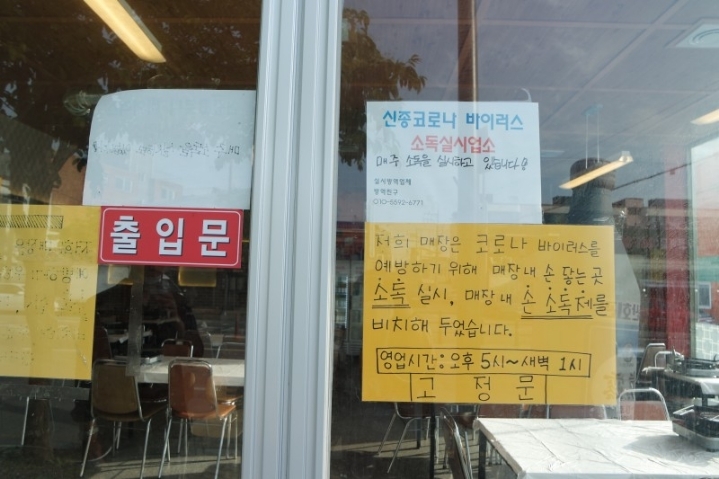 출입문
신종코로나 바이러스
소독실시업소
매주 소독을 실시하고 있습니다
실시방역업체
방역친구
010-5592-6771
저희 매장은 코로나 바이러스를
예방하기 위해 매장내 손 닿는 곳
소독 실시, 매장내 손 소독제를
비치해 두었습니다.
영업시간: 오후 5시~새벽 1시
고정문